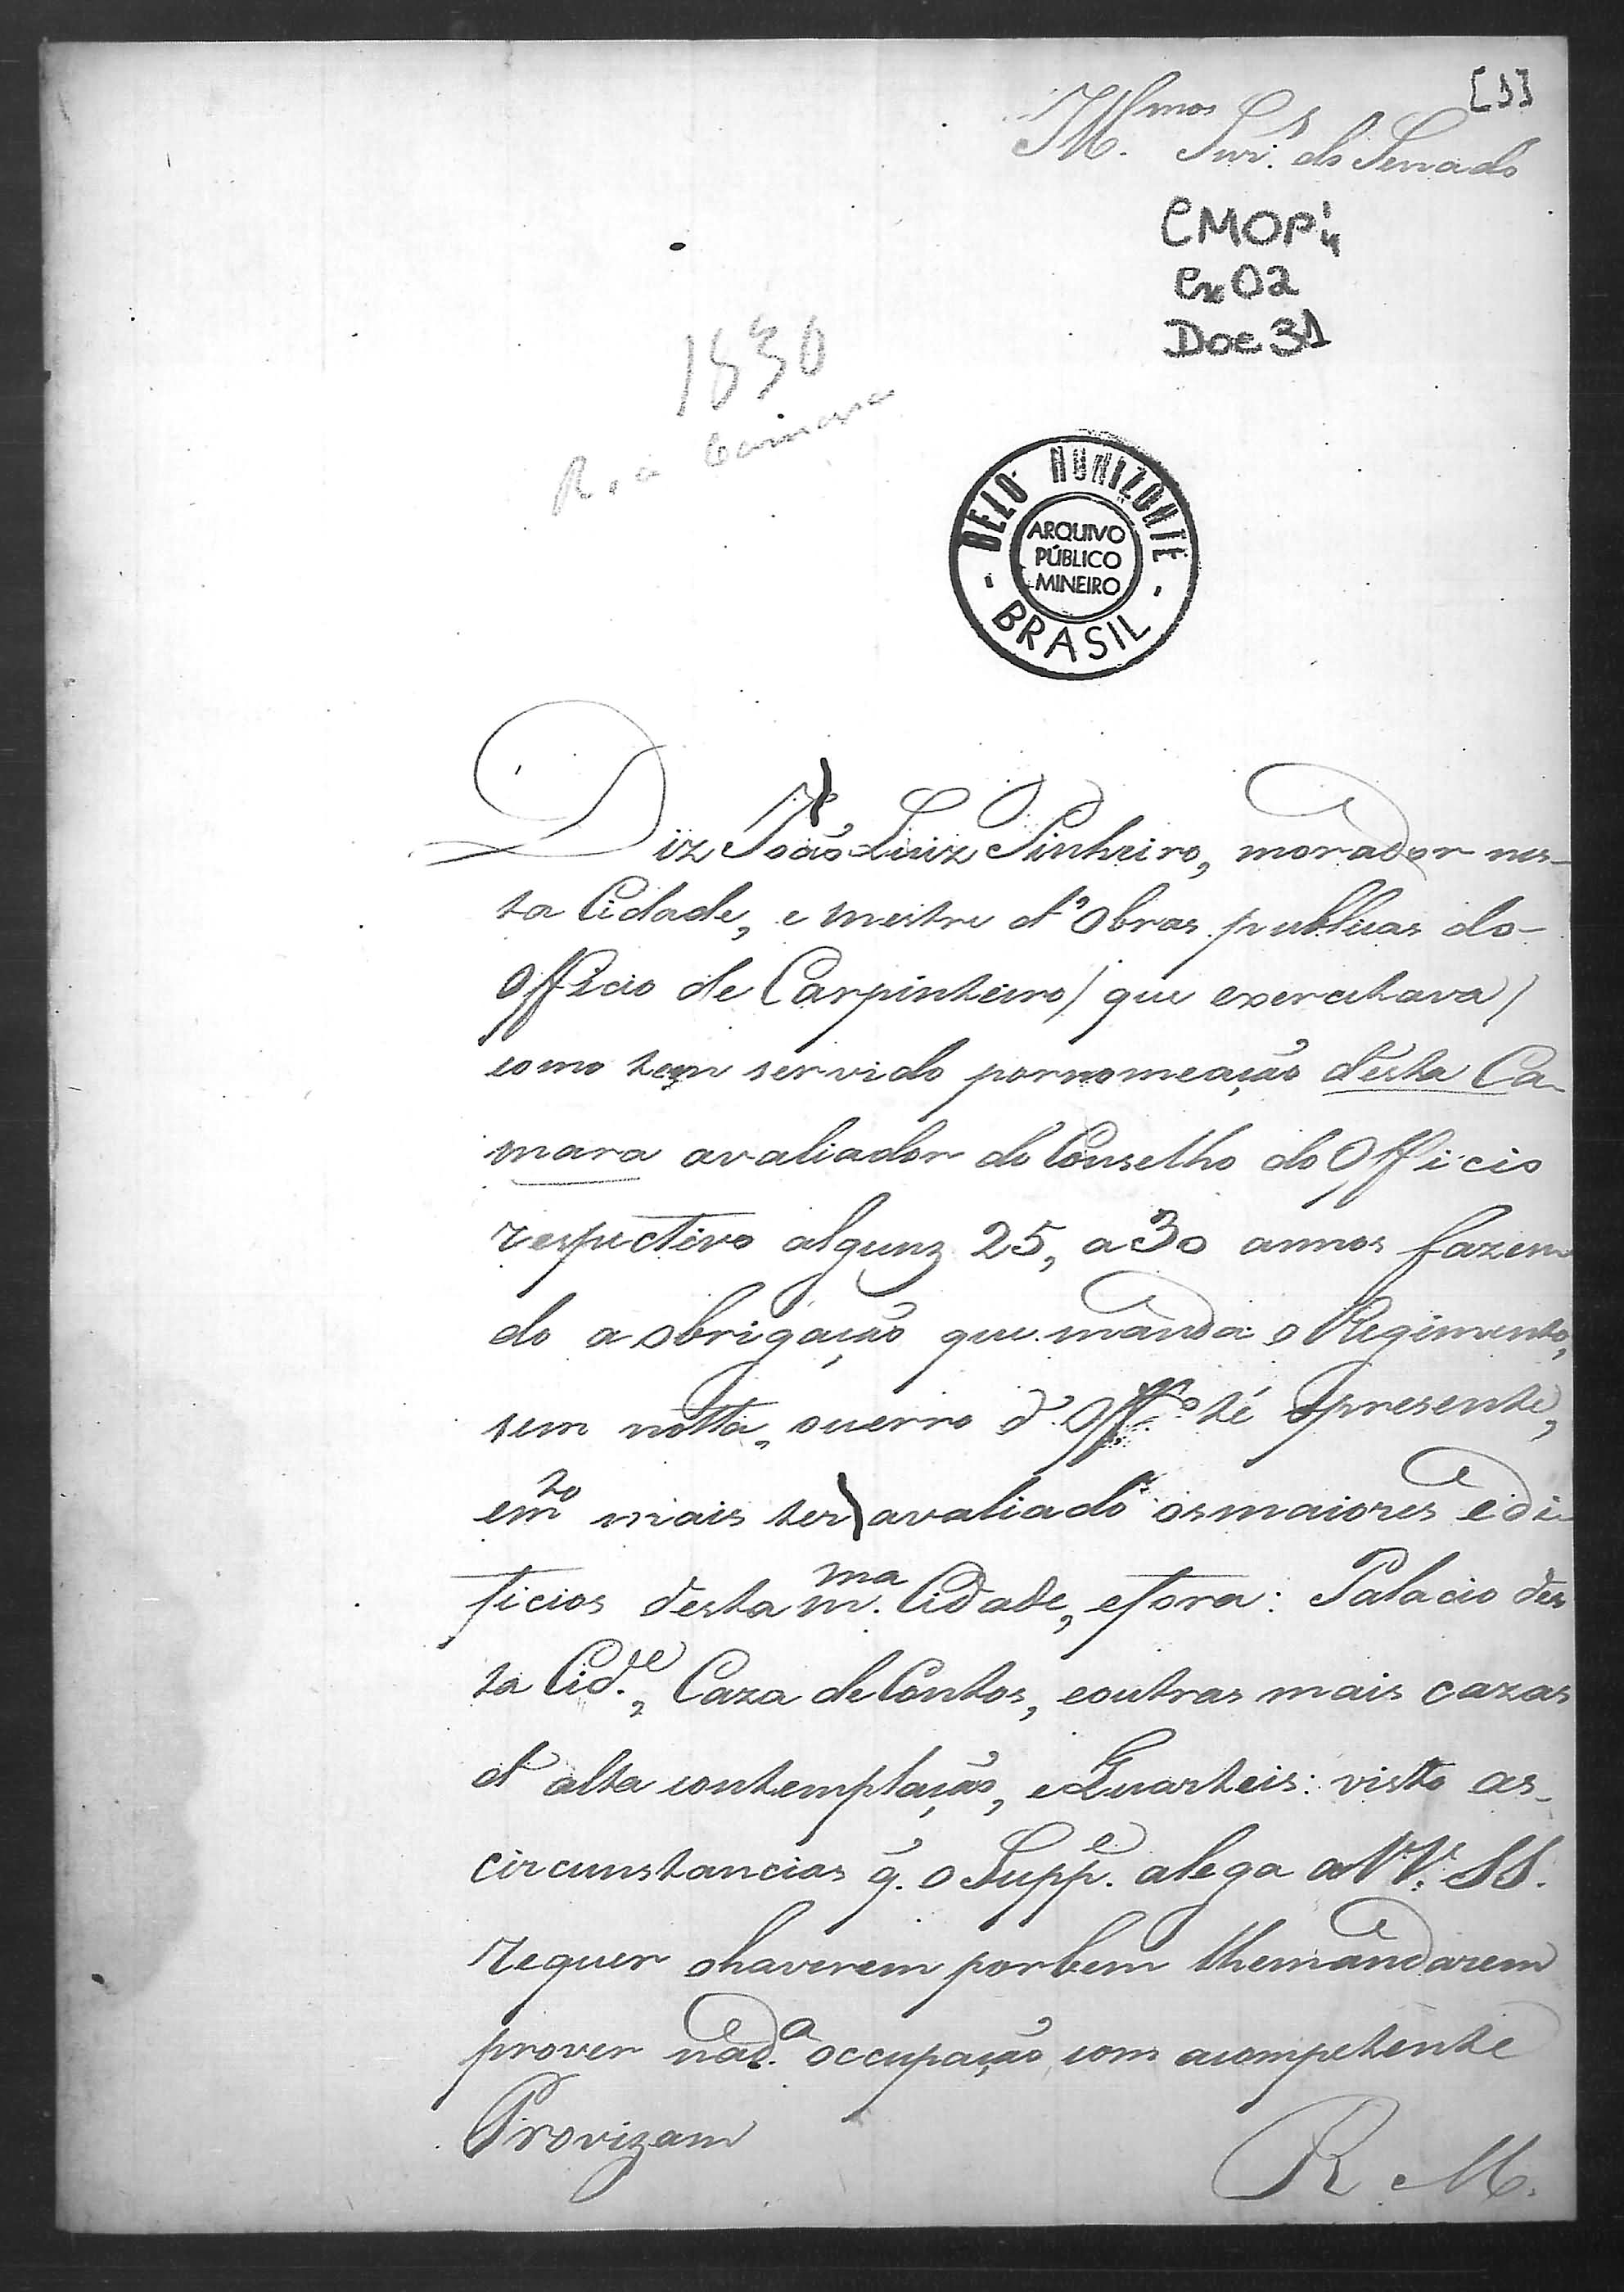 [1]
Ill.mos Snr.s do Senado
CMOP¹4
Cx 02
Doc 31
1830
R. a Camara
BELO HORIZONTE
ARQUIVO
PÚBLICO
MINEIRO
BRASIL
Diz João Luiz Pinheiro, morador nes-
ta Cidade, e mestre d'Obras publicas do
Officio de Carpinteiro / que exercitava /
como tem servido pornomeação desta Ca-
mara avaliador do Conselho do Officio
respectivo alguns 25, a 30 annos fazen
do a obrigação que manda o Regimento,
sem notta, ouerro d'Off.º té opresente,
em.to mais ter avaliado osmaiores edi-
ficios desta m.ma Cidade, efora: Palacio des
ta Cid.e, Caza de Contos, eoutras mais cazas
d'alta contemplação, eQuarteis: visto as-
circunstancias q. o Supp.e alega a VV. SS.
requer ohaverem porbem lhemandarem
prover nad.a occupação com acompetente
Provizam
R. M.